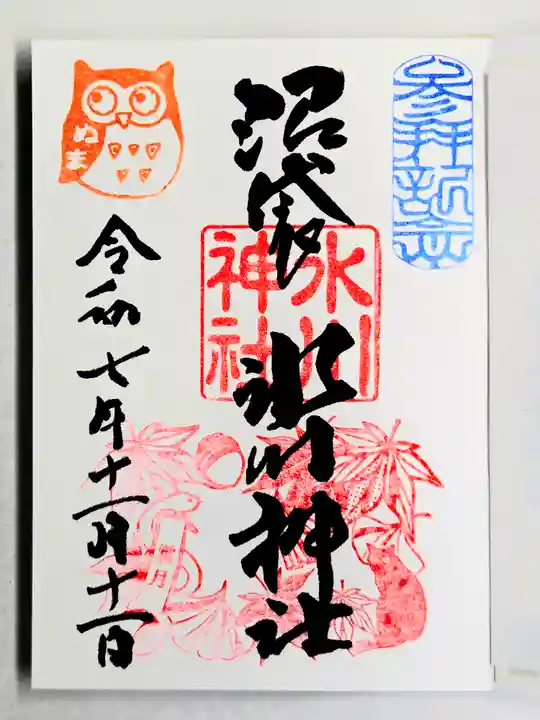 参拝記念
沼袋
氷川神社
氷川
神社
ぬま
令和七年十一月十一日
月